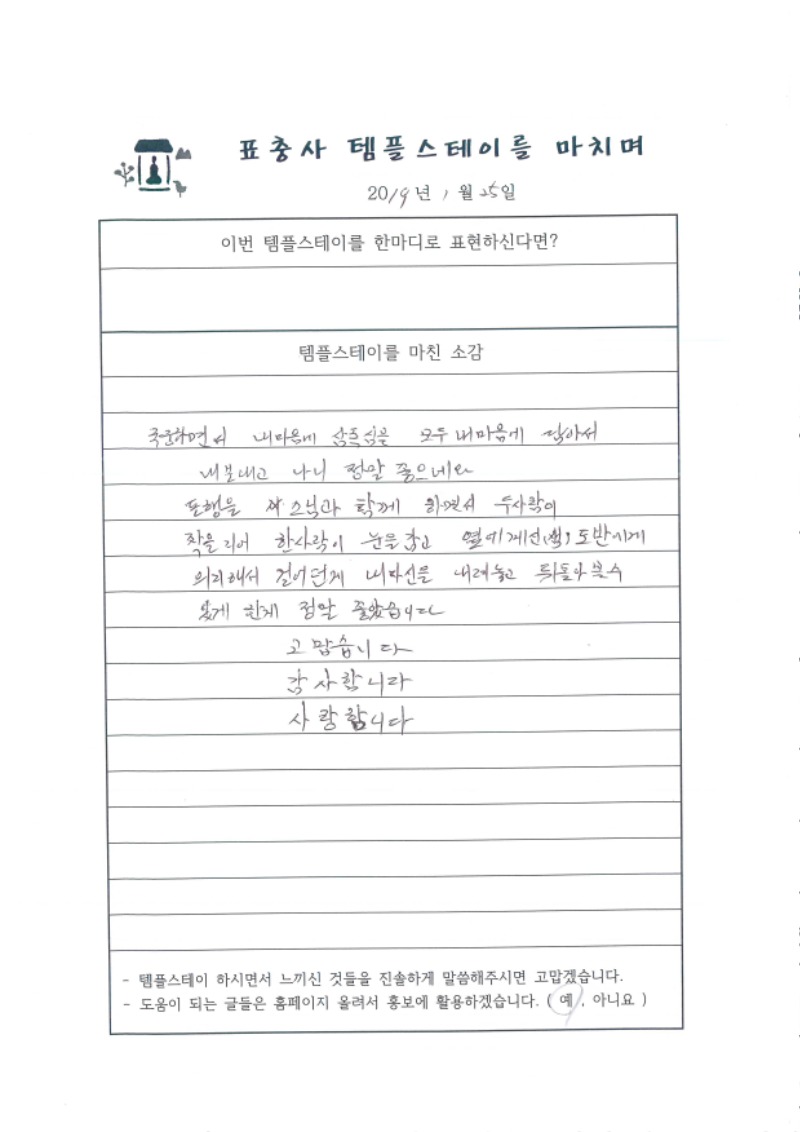 표충사 템플스테이를 마치며
2019년 1월 25일
이번 템플스테이를 한마디로 표현하신다면?
템플스테이를 마친 소감
내마음에 모두 내마음에 담아서
내보내고 나니 정말 좋으네요
포행을 스님과 함께 하면서 두사람이
짝을 리어 한사람이 눈을 감고 옆에 계신 도반에게
의리해서 걸어던게 내자신을 내려놓고 뒤돌아 볼수
있게 한게 정말 좋았습니다
고맙습니다
감사합니다
사랑합니다
- 템플스테이 하시면서 느끼신 것들을 진솔하게 말씀해주시면 고맙겠습니다.
- 도움이 되는 글들은 홈페이지 올려서 홍보에 활용하겠습니다. ( 예 , 아니요 )